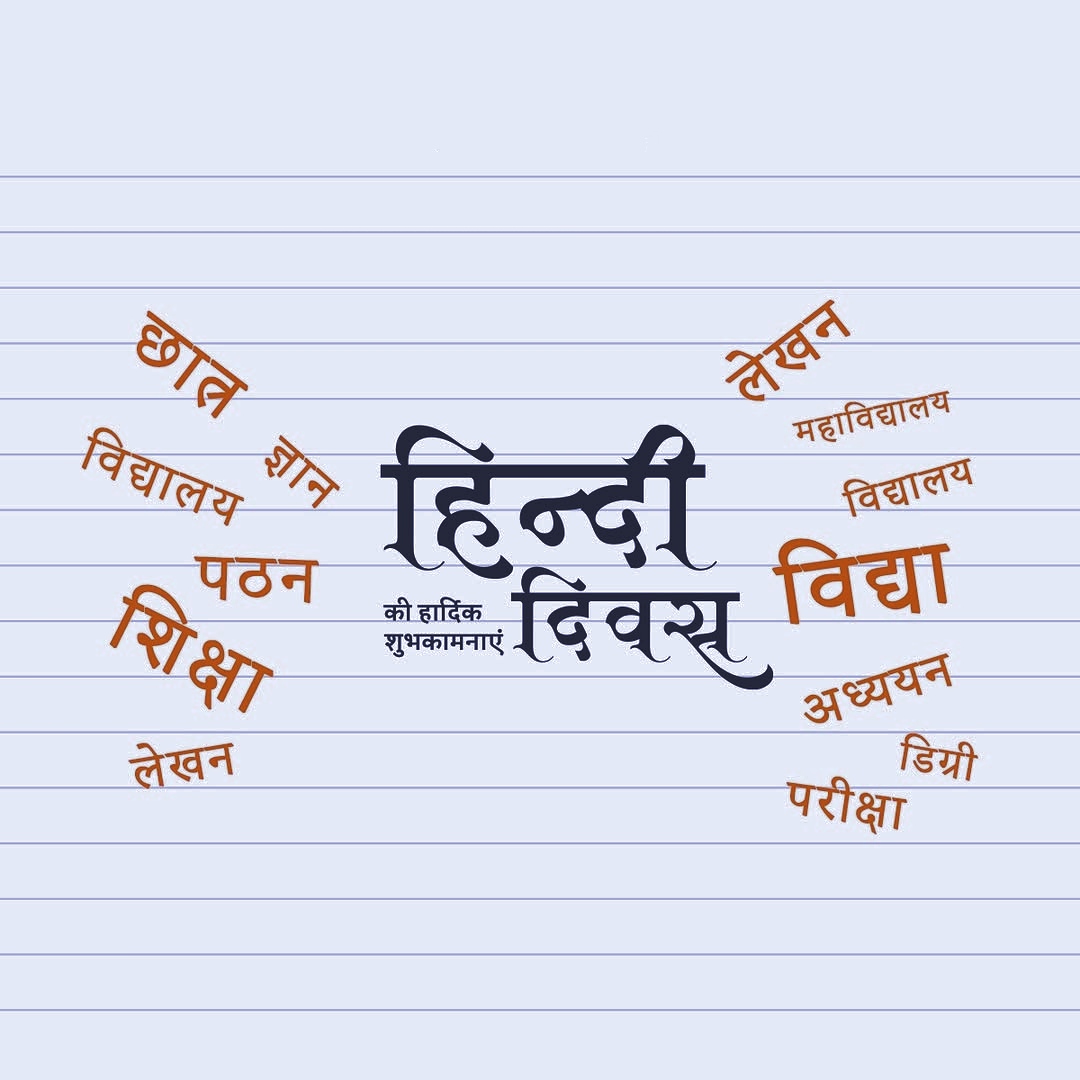 छात्र
विद्यालय
ज्ञान
पठन
शिक्षा
लेखन
हिन्दी
दिवस
की हार्दिक
शुभकामनाएं
लेखन
महाविद्यालय
विद्यालय
विद्या
अध्ययन
डिग्री
परीक्षा